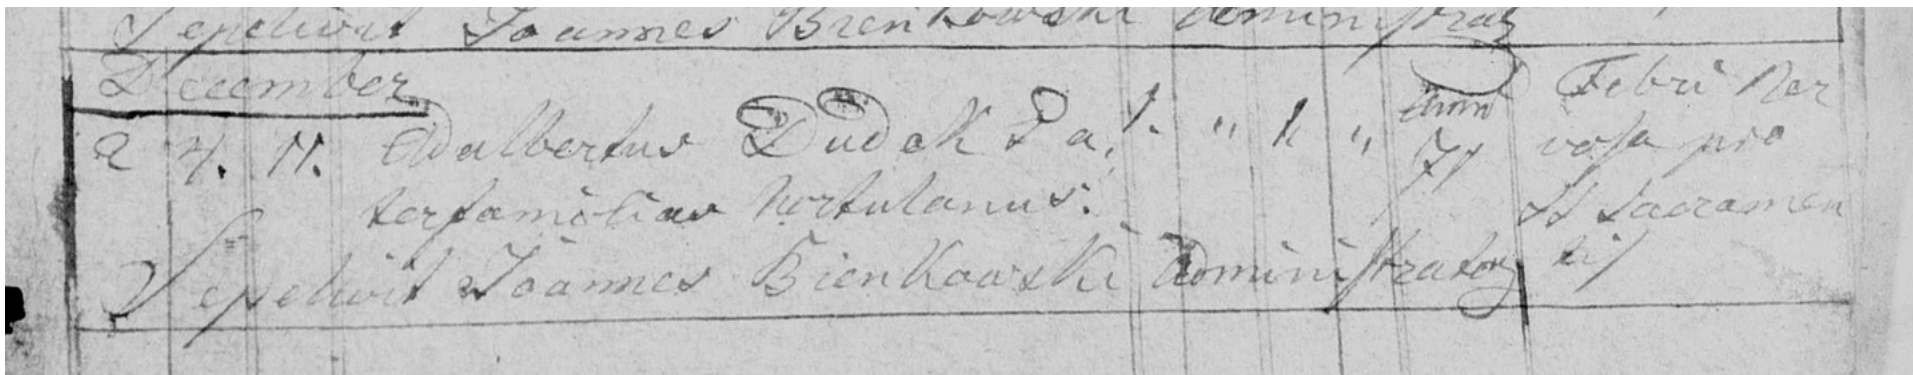 Sepelivit Joannes Bienkowski administrator
December
2 4. 11. Adalbertus Dudek Pa, 1. " 1 " Anno 71 Febri Ner
terfamilias hortulanus. vosa pro
SS Sacramen
Sepelivit Joannes Bienkowski Administrator tis